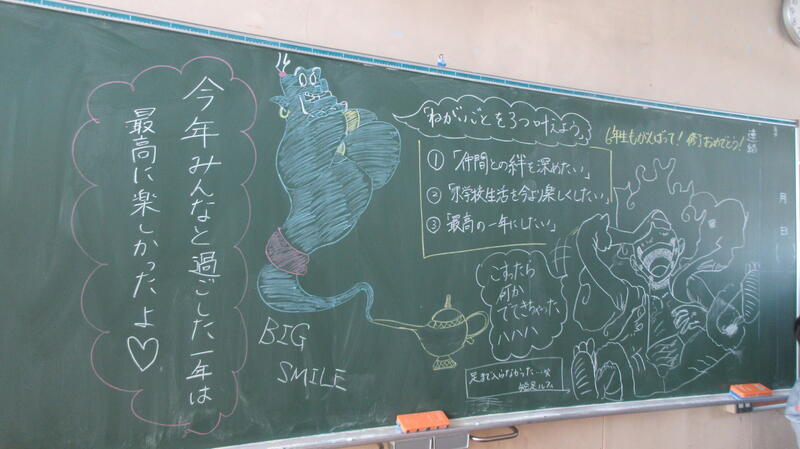 今年みんなと過ごした一年は
最高に楽しかったよ♡
BIG
SMILE
「ねがいごとを3つ叶えよう」
①「仲間との絆を深めたい」
②「小学校生活を今より楽しくしたい」
③「最高の一年にしたい」
6年生もがんばって! 修了おめでとう!
連絡
月
日
こすったら
何か
でてきちゃった
ハハハ
足まで入らなかった…